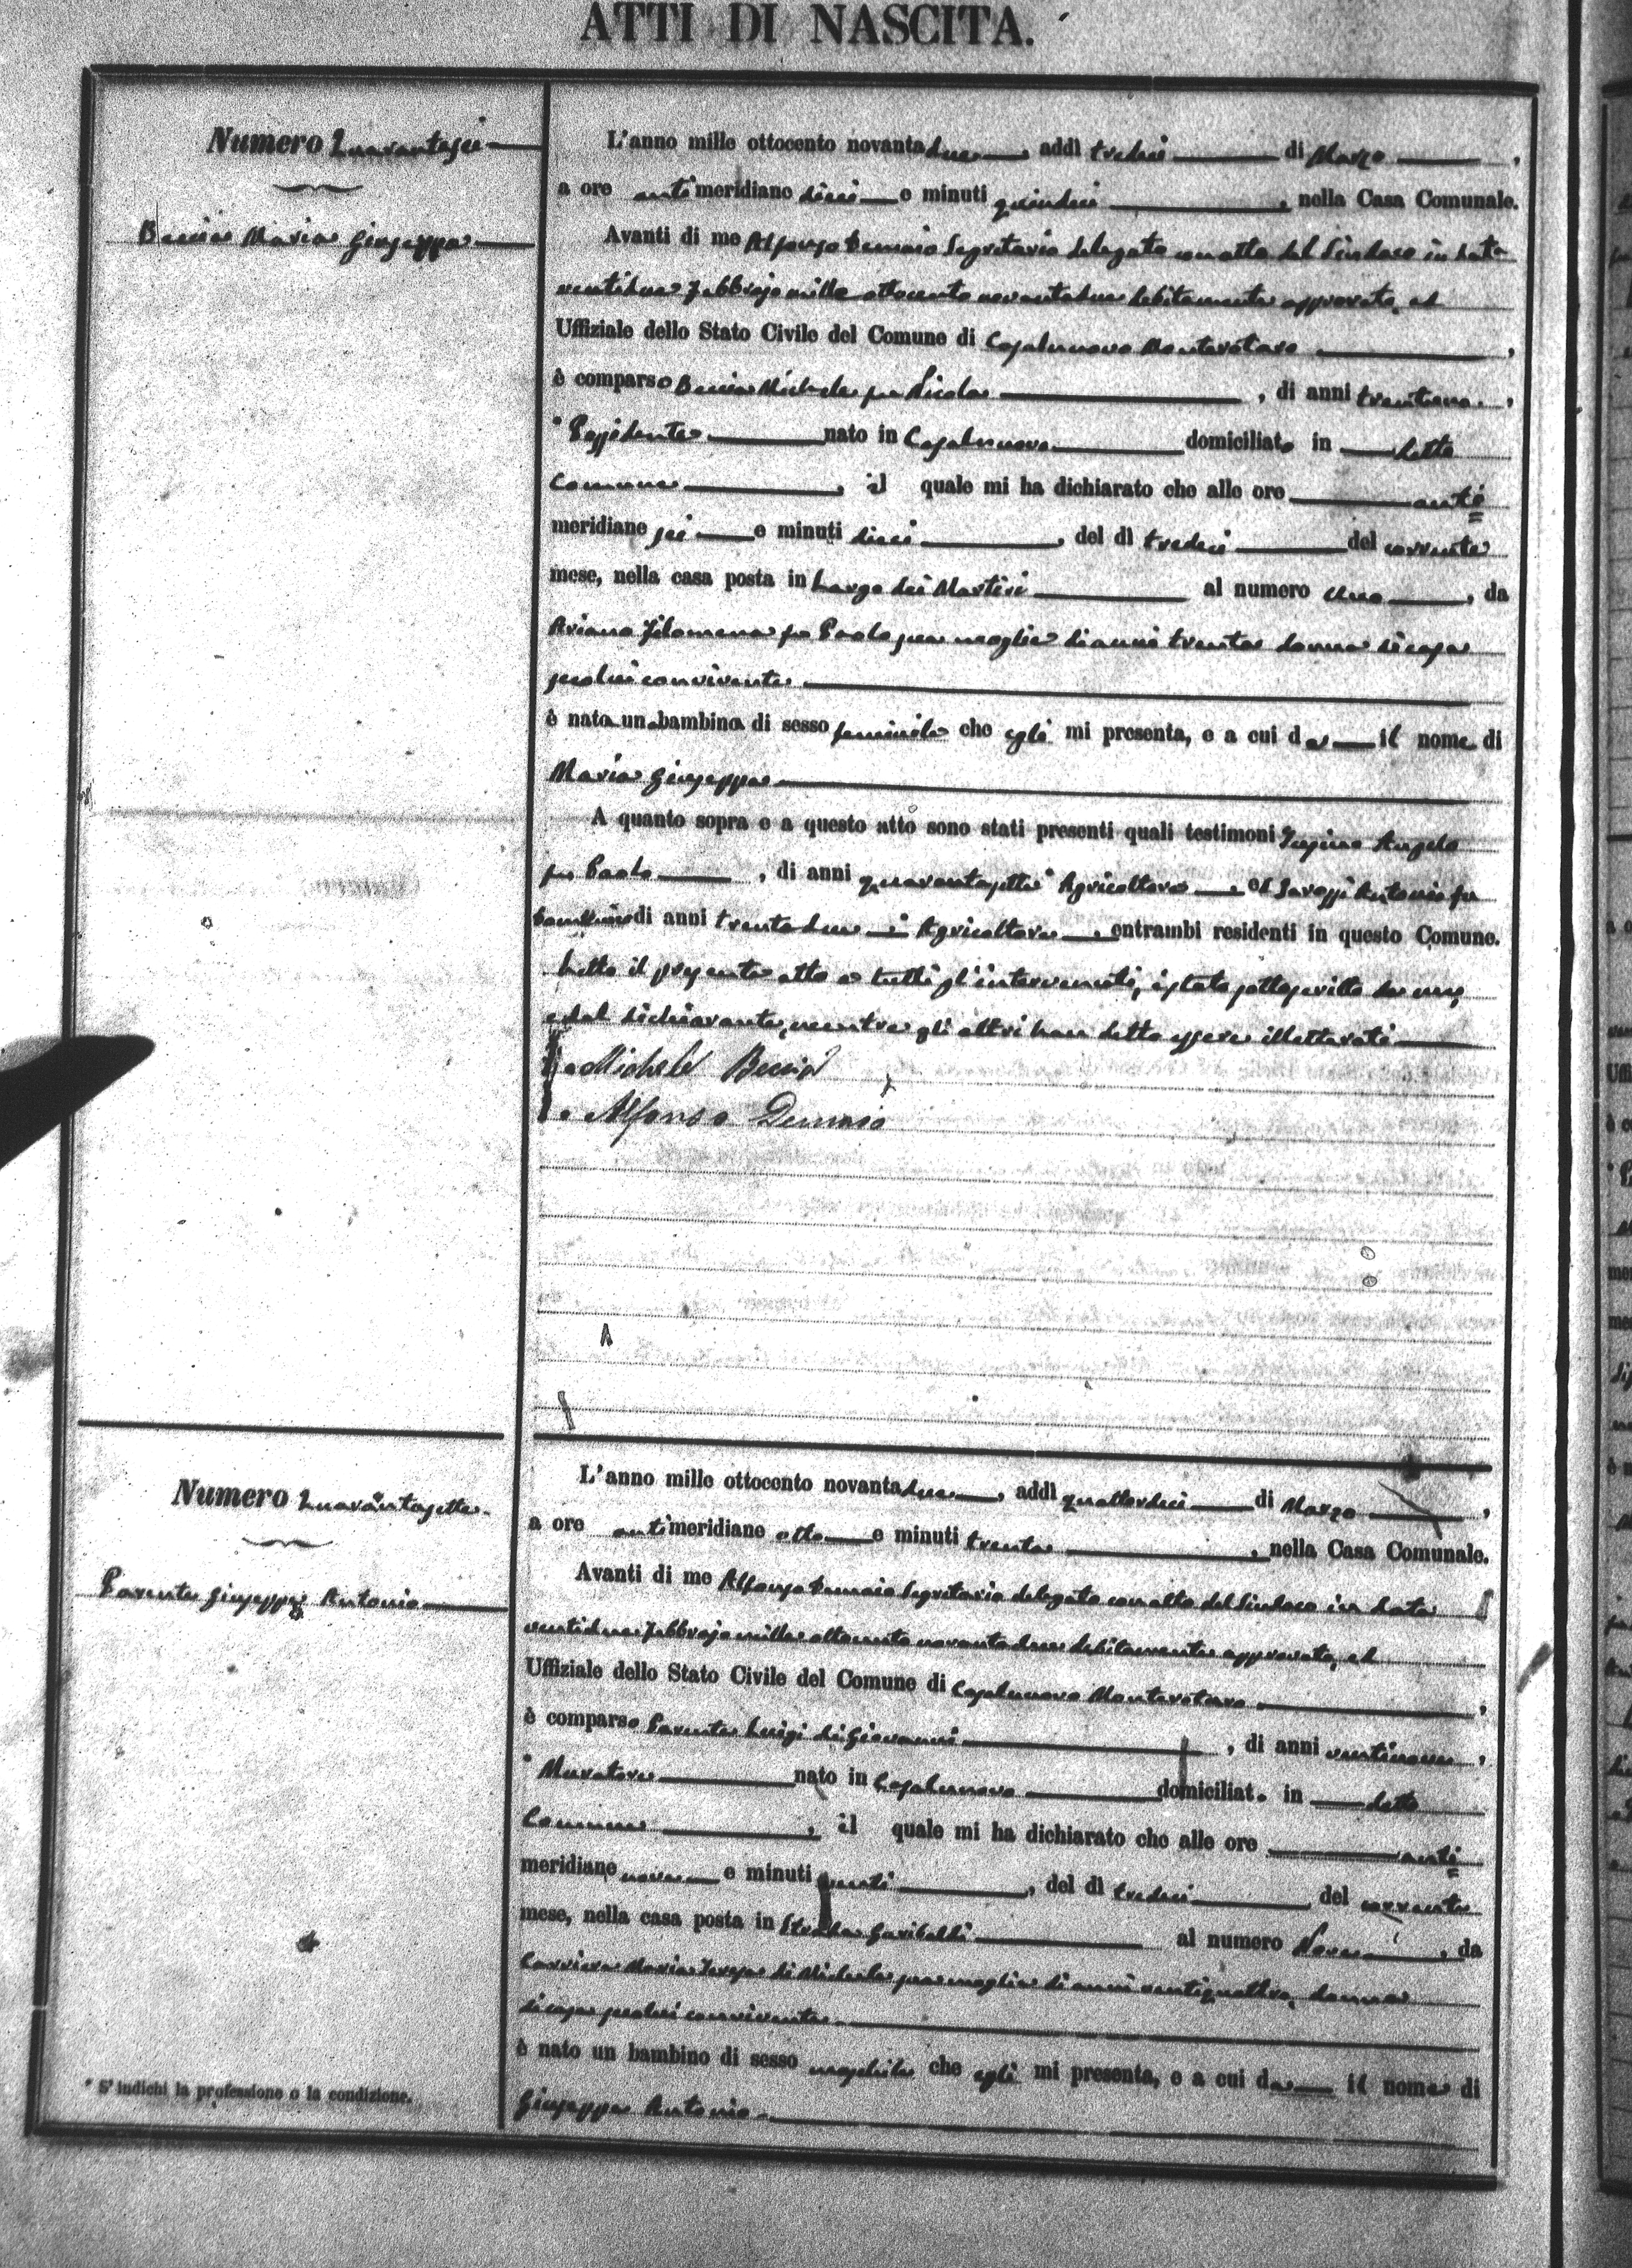 ATTI DI NASCITA.
Numero Quarantasei
Beccia Maria Giuseppa
L'anno mille ottocento novantadue, addì tredici di Marzo,
a ore antimeridiane dieci e minuti quindici, nella Casa Comunale.
Avanti di me Alfonso Segretario delegato con atto del Sindaco in data
ventidue Febbrajo mille ottocento novantadue debitamente approvato, ed
Uffiziale dello Stato Civile del Comune di Casalnuovo Monterotaro,
è comparso Beccia Michele fu Nicola, di anni trentuno,
* Possidente nato in Casalnuovo domiciliato in detto
Comune, il quale mi ha dichiarato che alle ore anti=
meridiane sei e minuti dieci, del dì tredici del corrente
mese, nella casa posta in Largo dei Martiri al numero uno, da
Filomena fu Paolo sua moglie di anni trenta donna di casa
seco lui convivente
è nata una bambina di sesso feminile che egli mi presenta, e a cui da il nome di
Maria Giuseppa
A quanto sopra e a questo atto sono stati presenti quali testimoni Angelo
fu Paolo, di anni quarantasette Agricoltore ed Antonio fu
di anni trentadue Agricoltore, entrambi residenti in questo Comune.
Letto il presente atto a tutti gl'intervenuti, è stato sottoscritto da me,
e dal dichiarante, mentre gli altri han detto essere illetterati
Michele Beccia
Alfonso
Numero Quarantasette.
Parente Giuseppe Antonio
L'anno mille ottocento novantadue, addì quattordici di Marzo,
a ore antimeridiane otto e minuti trenta, nella Casa Comunale.
Avanti di me Alfonso Segretario delegato con atto del Sindaco in data
ventidue Febbrajo mille ottocento novantadue debitamente approvato, ed
Uffiziale dello Stato Civile del Comune di Casalnuovo Monterotaro,
è comparso Parente Luigi di Giovanni, di anni ventinove,
* Muratore nato in Casalnuovo domiciliato in detto
Comune, il quale mi ha dichiarato che alle ore anti=
meridiane nove e minuti venti, del dì tredici del corrente
mese, nella casa posta in Strada Garibaldi al numero Nove, da
Maria Teresa di Michele sua moglie di anni ventiquattro, donna
di casa seco lui convivente
è nato un bambino di sesso maschile che egli mi presenta, e a cui da il nome di
Giuseppe Antonio
* S'indichi la professione o la condizione.